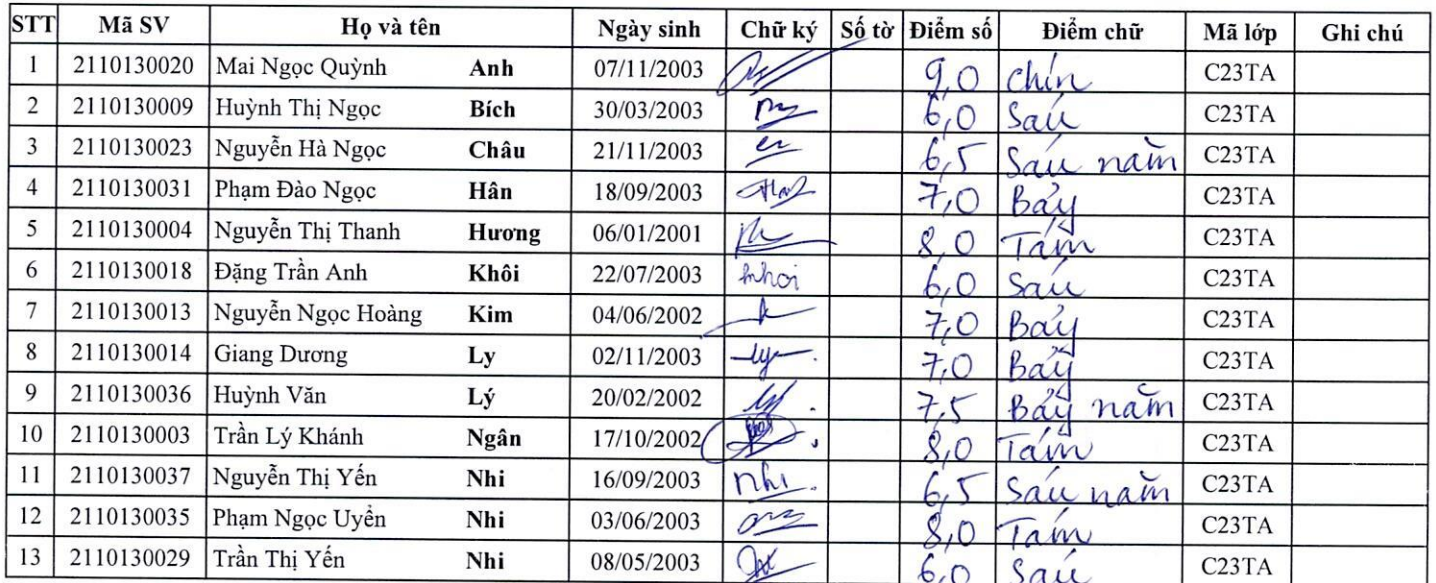 STT Mã SV Họ và tên Ngày sinh Chữ ký Số tờ Điểm số Điểm chữ Mã lớp Ghi chú
1 2110130020 Mai Ngọc Quỳnh Anh 07/11/2003 9,0 chín C23TA
2 2110130009 Huỳnh Thị Ngọc Bích 30/03/2003 6,0 Sáu C23TA
3 2110130023 Nguyễn Hà Ngọc Châu 21/11/2003 6,5 Sáu năm C23TA
4 2110130031 Phạm Đào Ngọc Hân 18/09/2003 7,0 Bảy C23TA
5 2110130004 Nguyễn Thị Thanh Hương 06/01/2001 8,0 Tám C23TA
6 2110130018 Đặng Trần Anh Khôi 22/07/2003 khoi 6,0 Sáu C23TA
7 2110130013 Nguyễn Ngọc Hoàng Kim 04/06/2002 7,0 Bảy C23TA
8 2110130014 Giang Dương Ly 02/11/2003 ly 7,0 Bảy C23TA
9 2110130036 Huỳnh Văn Lý 20/02/2002 7,5 Bảy năm C23TA
10 2110130003 Trần Lý Khánh Ngân 17/10/2002 8,0 Tám C23TA
11 2110130037 Nguyễn Thị Yến Nhi 16/09/2003 nhi 6,5 Sáu năm C23TA
12 2110130035 Phạm Ngọc Uyển Nhi 03/06/2003 8,0 Tám C23TA
13 2110130029 Trần Thị Yến Nhi 08/05/2003 6,0 Sáu C23TA